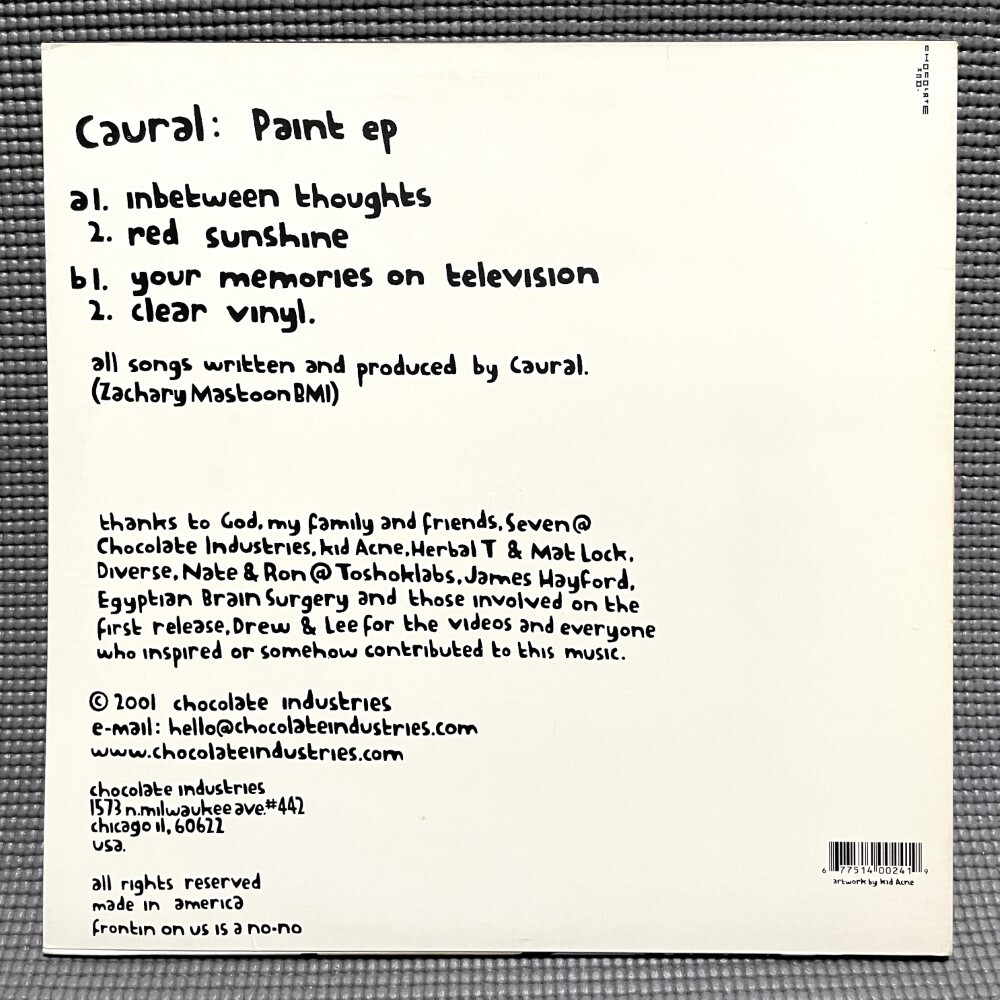 CHOCOLATE
IND.
Caural: Paint ep
a1. inbetween thoughts
2. red sunshine
b1. your memories on television
2. clear vinyl.
all songs written and produced by Caural.
(Zachary Mastoon BMI)
thanks to God, my family and friends, Seven@
Chocolate Industries, kid Acne, Herbal T & Mat Lock,
Diverse, Nate & Ron @ Toshoklabs, James Hayford,
Egyptian Brain Surgery and those involved on the
first release, Drew & Lee for the videos and everyone
who inspired or somehow contributed to this music.
© 2001 chocolate industries
e-mail: hello@chocolateindustries.com
www.chocolateindustries.com
chocolate industries
1573 n.milwaukee ave.#442
chicago il, 60622
usa.
all rights reserved
made in america
frontin on us is a no-no
6 77514 00241 9
artwork by kid Acne